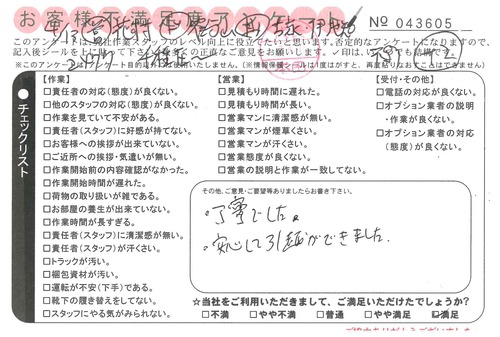 お客様不満
No 043605
このアンケートは、弊社作業スタッフのレベル向上に役立てたいと思います。否定的なアンケートになりますので、
記入後シールを上に貼って下さい。多くの正直なご意見をお願いします。
【作業】
□責任者の対応(態度)が良くない。
□他のスタッフの対応(態度)が良くない。
□作業を見ていて不安がある。
□責任者(スタッフ)に好感が持てない。
□お客様への挨拶が出来ていない。
□ご近所への挨拶・気遣いが無い。
□作業開始前の内容確認がなかった。
□作業開始時間が遅れた。
□荷物の取り扱いが雑である。
□お部屋の養生が出来ていない。
□作業時間が長すぎる。
□責任者(スタッフ)に清潔感が無い。
□責任者(スタッフ)が汗くさい。
□トラックが汚い。
□梱包資材が汚い。
□運転が不安(下手)である。
□靴下の履き替えをしてない。
□スタッフにやる気がみられない。
【営業】
□見積もり時間に遅れた。
□見積もり時間が長い。
□営業マンに清潔感が無い。
□営業マンが煙草くさい。
□営業マンが汗くさい。
□営業態度が良くない。
□営業の説明と作業が一致してない。
【受付・その他】
□電話の対応が良くない。
□オプション業者の説明
・作業が良くない。
□オプション業者の対応
(態度)が良くない。
チェックリスト
その他、ご意見・ご要望等ありましたらお書き下さい。
・丁寧でした。
・安心して引越ができました。
☆当社をご利用いただきまして、ご満足いただけたでしょうか?
□不満 □やや不満 □普通 □やや満足 ☑満足